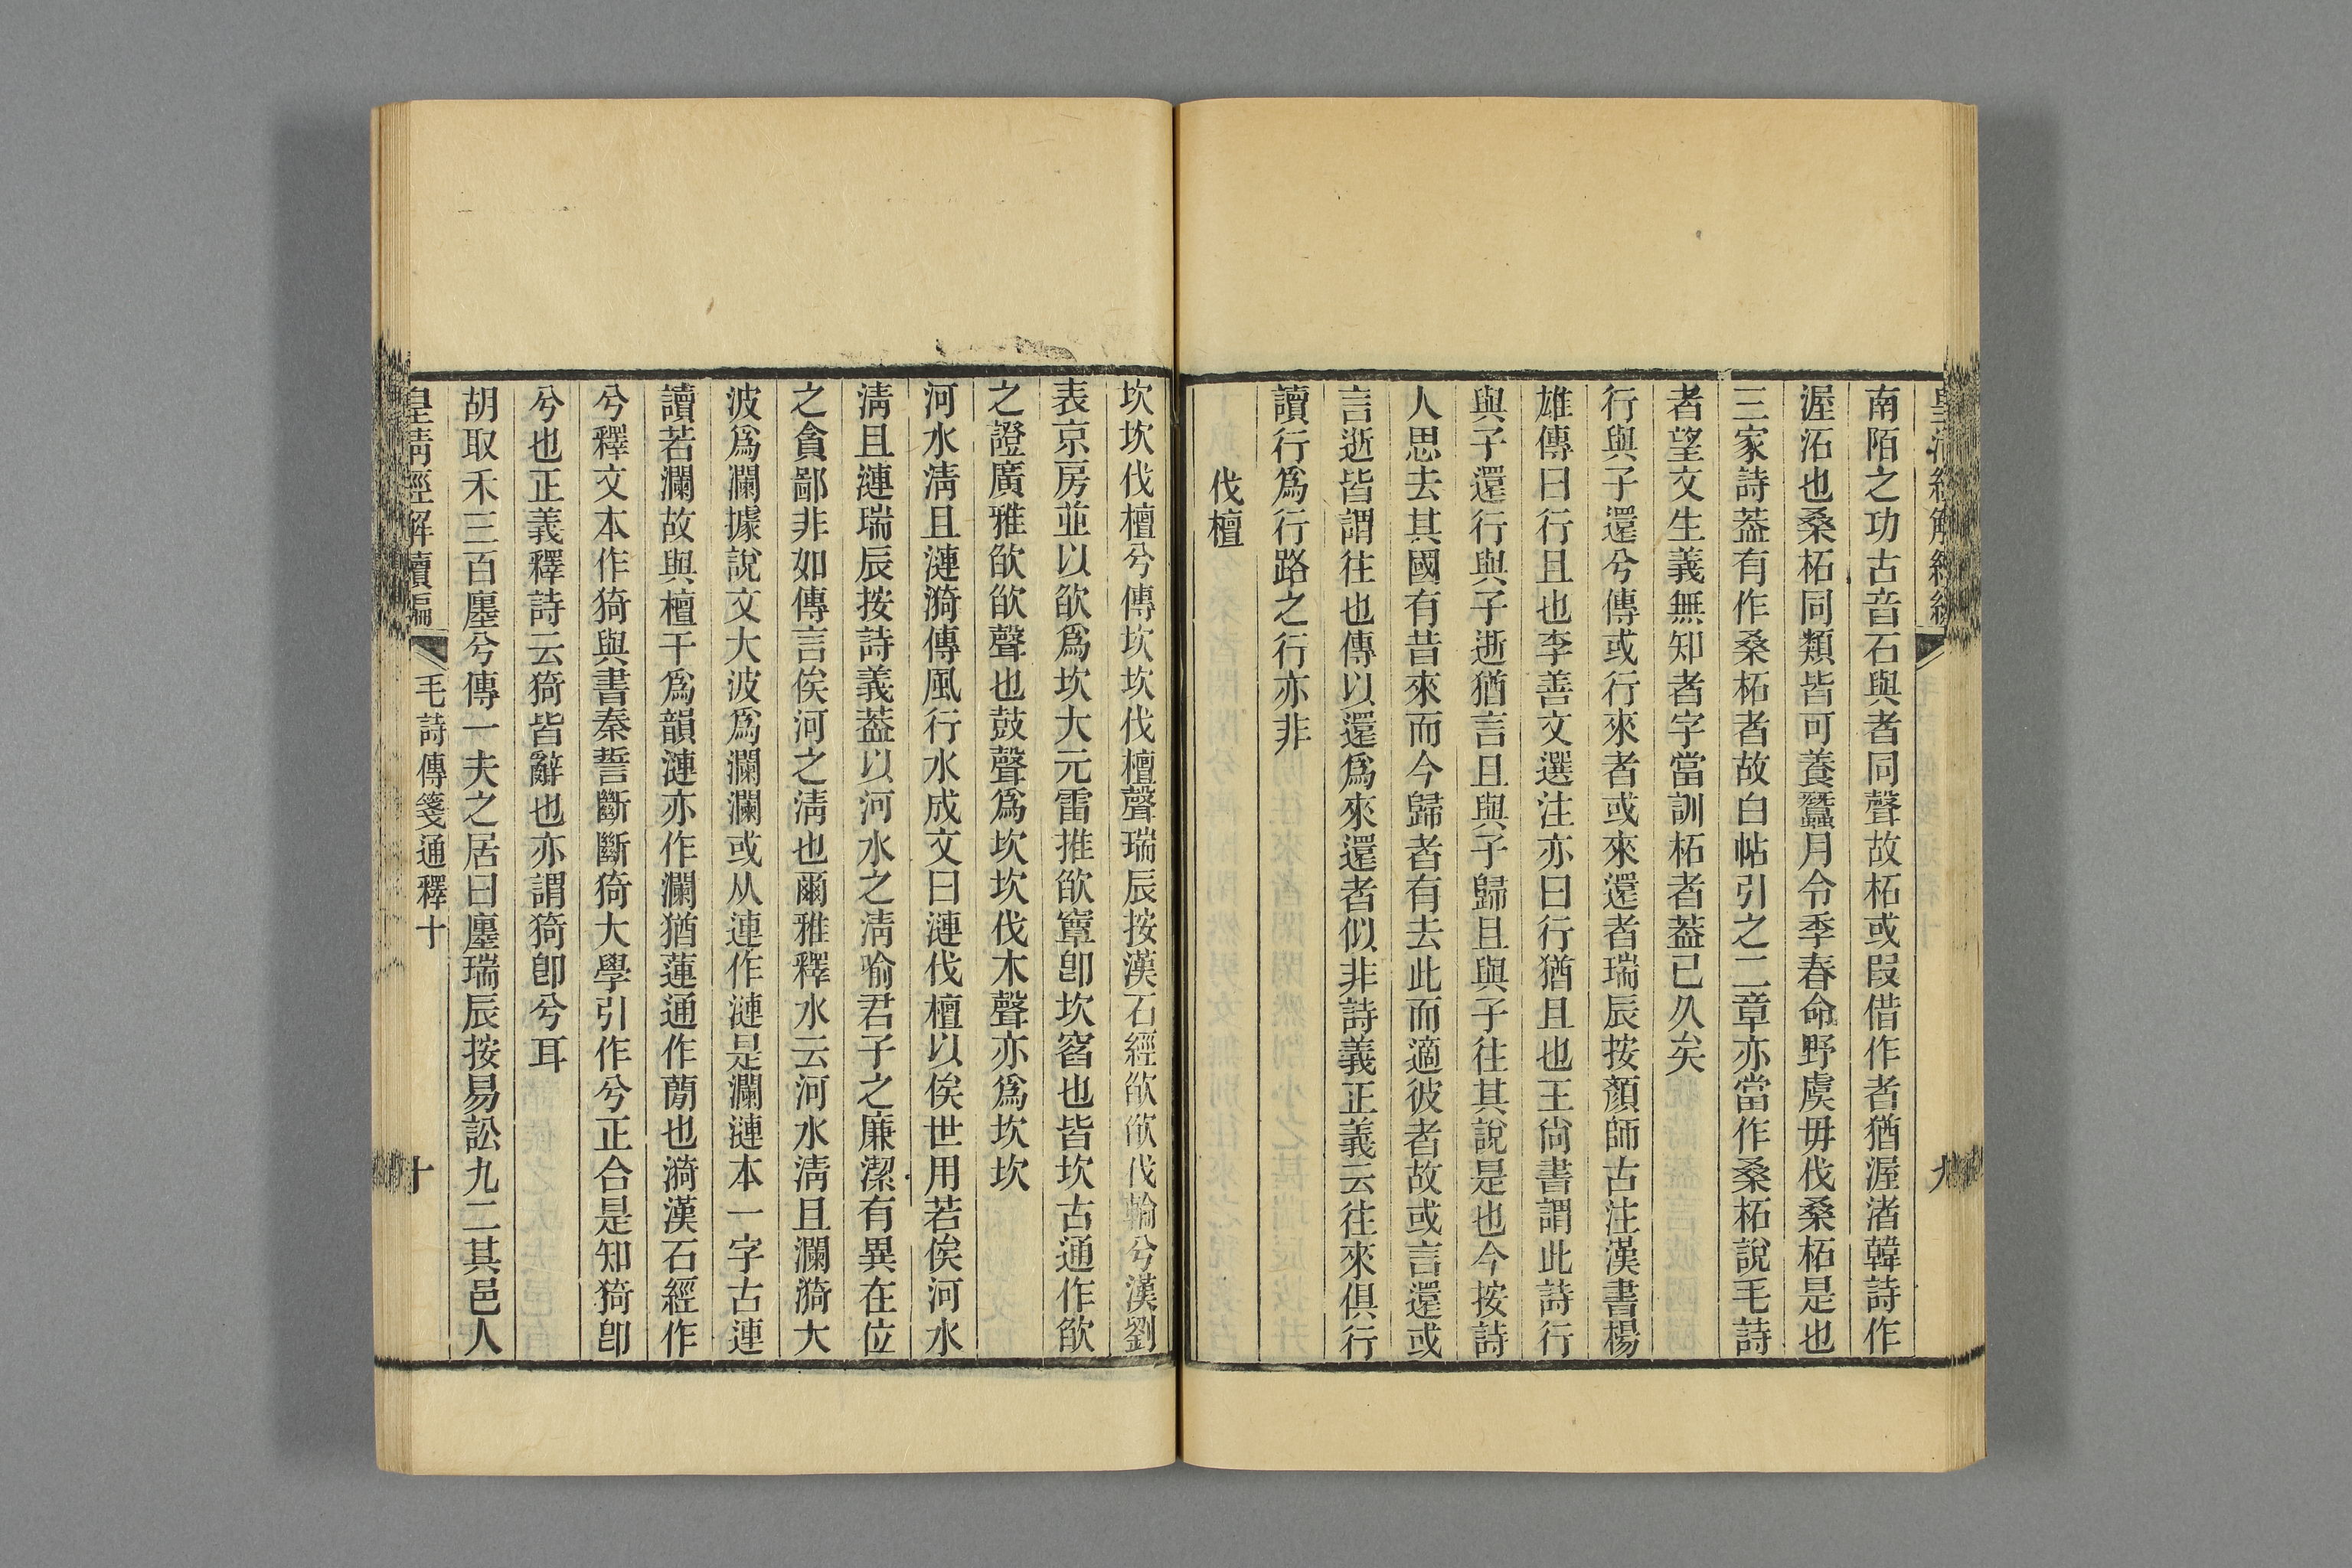 南陌之功古音石與者同聲故柘或叚借作者猶渥渚韓詩作
渥沰也桑柘同類皆可養蠶月令季春命野虞毋伐桑柘是也
三家詩葢有作桑柘者故白帖引之二章亦當作桑柘說毛詩
者望文生義無知者字當訓柘者葢已久矣
行與子還兮傳或行來者或來還者瑞辰按顏師古注漢書楊
雄傳曰行且也李善文選注亦曰行猶且也王尙書謂此詩行
與子還行與子逝猶言且與子歸且與子往其說是也今按詩
人思去其國有昔來而今歸者有去此而適彼者故或言還或
言逝皆謂往也傳以還爲來還者似非詩義正義云往來俱行
讀行爲行路之行亦非
伐檀
坎坎伐檀兮傳坎坎伐檀聲瑞辰按漢石經欿欿伐輪兮漢劉
表京房並以欿爲坎大元雷推欿窞卽坎窞也皆坎古通作欿
之證廣雅欿欿聲也鼓聲爲坎坎伐木聲亦爲坎坎
河水淸且漣漪傳風行水成文曰漣伐檀以俟世用若俟河水
淸且漣瑞辰按詩義葢以河水之淸喻君子之廉潔有異在位
之貪鄙非如傳言俟河之淸也爾雅釋水云河水淸且瀾漪大
波爲瀾據說文大波爲瀾瀾或从連作漣是瀾漣本一字古連
讀若瀾故與檀干爲韻漣亦作瀾猶蓮通作蕑也漪漢石經作
兮釋文本作猗與書秦誓斷斷猗大學引作兮正合是知猗卽
兮也正義釋詩云猗皆辭也亦謂猗卽兮耳
胡取禾三百廛兮傳一夫之居曰廛瑞辰按易訟九二其邑人
皇淸經解續編
毛詩傳箋通釋十
十